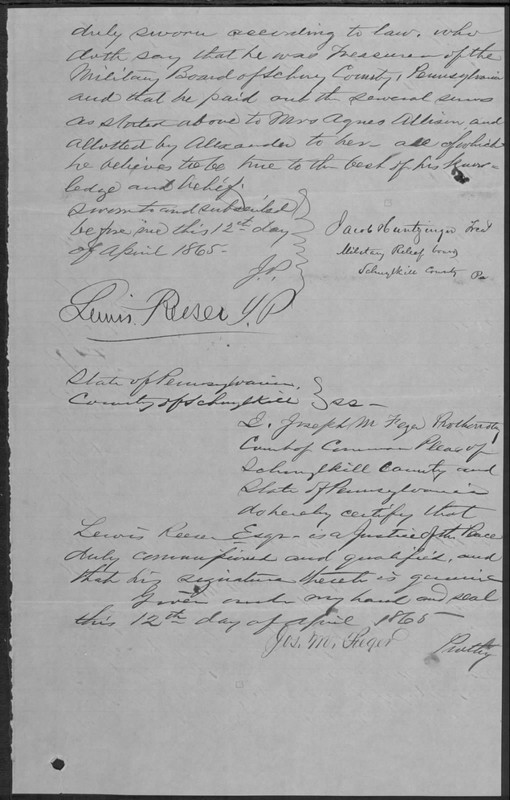 duly sworn according to law, who
doth say that he was Treasurer of the
Military Board of Schuy County, Pennsylvania
and that he paid out the several sums
as stated above to Mrs Agnes Allison and
allotted by Alexander to her all of which
he believes to be true to the best of his know-
ledge and belief.
sworn to and subscribed
before me this 12th day
of April 1865-
J.P.
Jacob Huntzinger Trea
Military Relief
Schuylkill County Pa
Lewis Reeser J.P
State of Pennsylvania,
County of Schuylkill } ss-
I. Joseph M Feger Prothonoty
Court of Common Pleas of
Schuylkill County and
State of Pennsylvania
do hereby certify that
Lewis Reeser Esqr is a Justice of the Peace
duly commissioned and qualified, and
that his signature thereto is genuine
Given under my hand and seal
this 12th day of April 1865
Jos. M. Feger Prothy